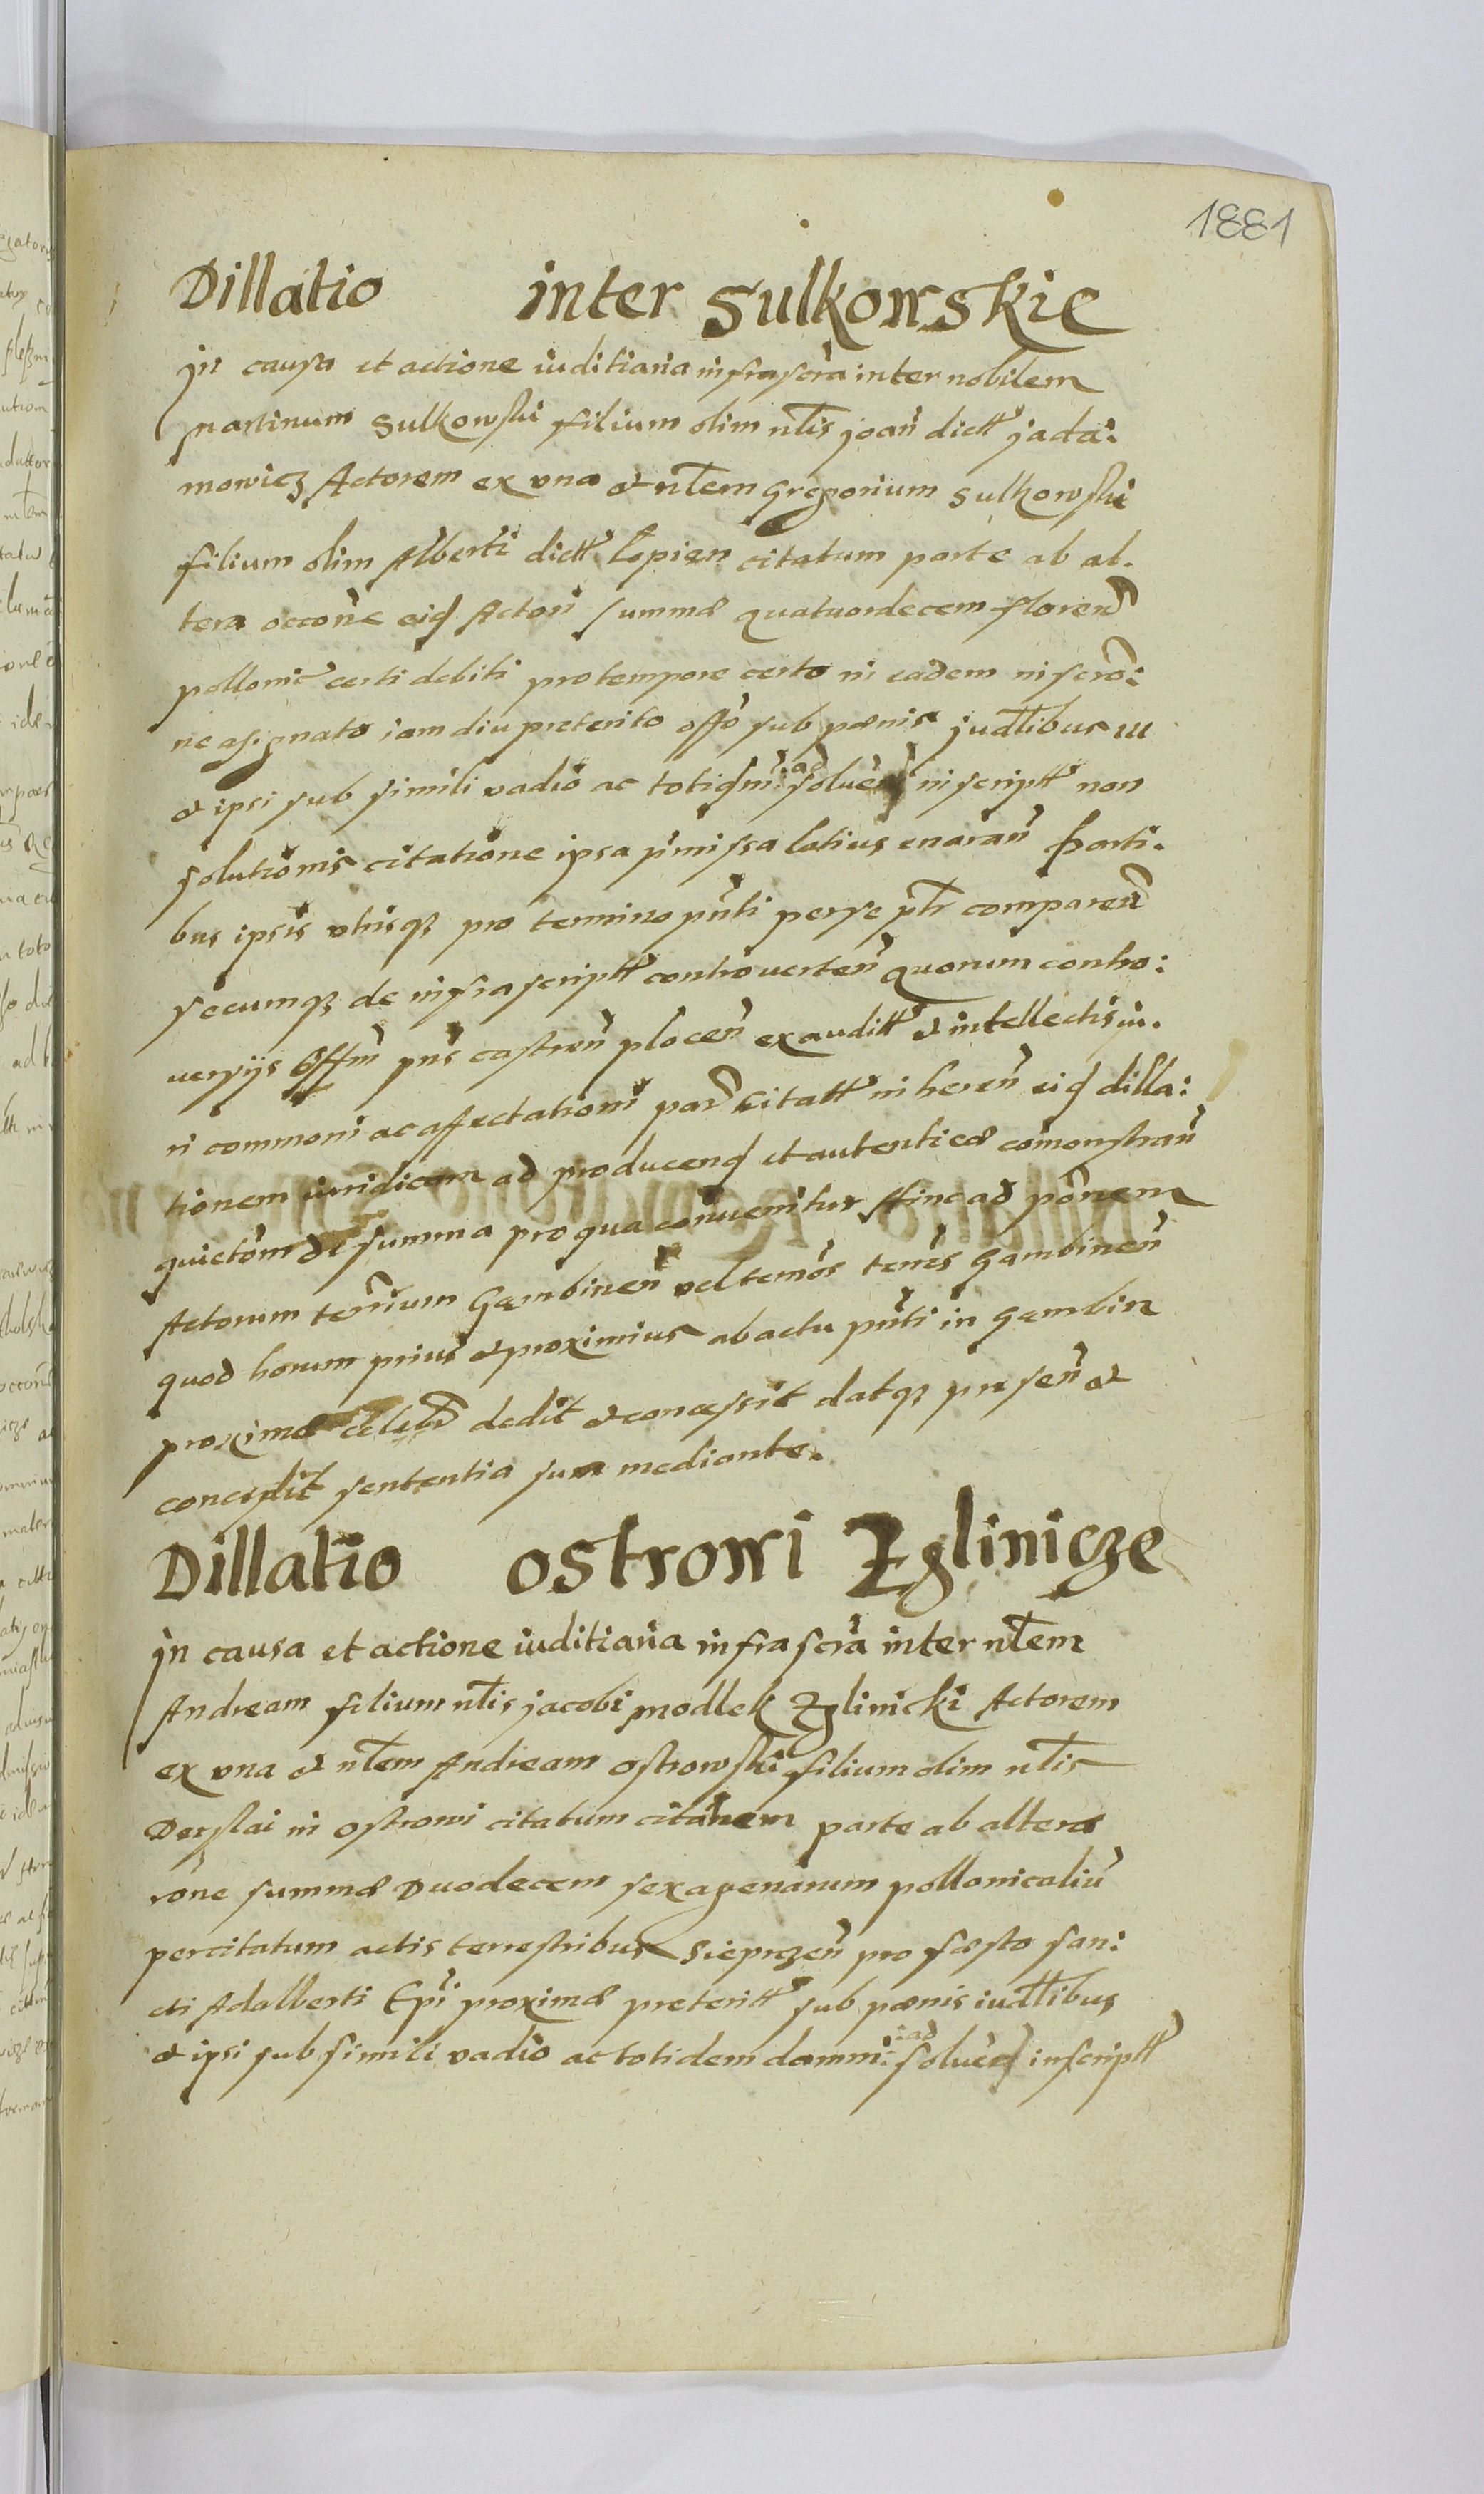 1881
Dillatio inter Sulkowskie
Jn causa et actione iuditiaria infrascra inter nobilem
Martinum Sulkowski filium olim nlis Joan dictt Jada:
mowicz Actorem ex vna & nlem Gregorium Sulkowski
filium olim Alberti dictt Lopien citatum parte ab al.
tera occone eid Actori summæ quatuordecem floren
pollonic certi debiti pro tempore certo in eadem inscro:
ne asignato iam diu preterito offo sub pænis judlibus III
& ipsi sub simili vadio ac totidm: ad soluen inscriptt non
solutionis citatione ipsa pmissa latius enaran Parti.
bus ipsis vtrisq pro termino pnti per se ptr comparen
secumq de infrascriptt controuerten quorum contro:
uersijs Offm pns castren plocen exauditt & intellectis iu.
ri commoni ac affectationi par citatt inheren eid dilla:
tionem iuridicam ad producend et autenticæ comonstran
quietom de summa pro qua conuenitur Hinc ad ponem
Actorum terrium Gambinen vel temos terres Gambinen
quod horum prius & proximius ab actu pnti in Gambin
proximæ celebr dedit & concessit datq pr sen &
concedit sententia sua mediante.
Dillatio Ostrowi Zglinicze
Jn causa et actione iuditiaria infrascra inter nlem
Andream filium nlis Jacobi Modlek Zglinicki Actorem
ex vna & nlem Andream Ostrowski filium olim nlis
Derslai in Ostrowi citatum citanem parte ab altera
rone summæ Duodecem sexagenarum pollonicaliu
per citatum actis terrestribus Sieprzen pro fæsto San:
cti Adalberti Epi proximæ preteritt sub pænis iudlibus
& ipsi sub simili vadio ac totidem damni: ad solued inscriptt